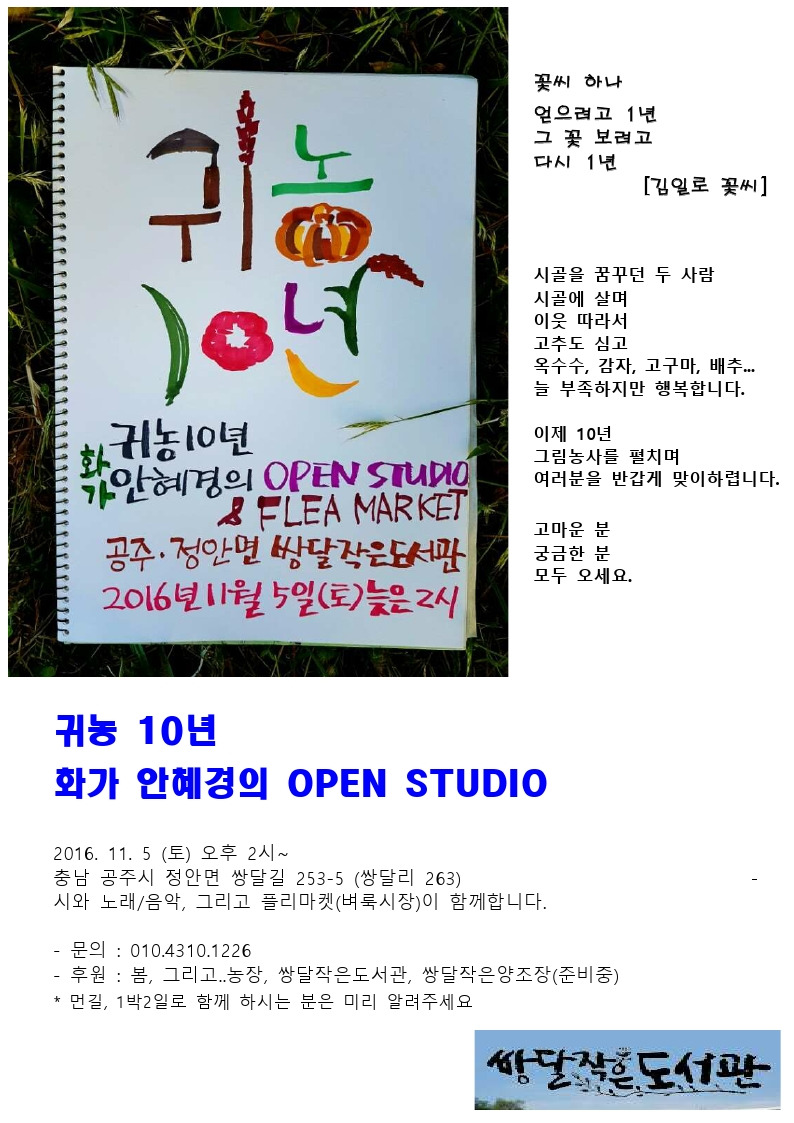 귀농
10년
귀농10년
화가
안혜경의 OPEN STUDIO
& FLEA MARKET
공주·정안면 쌍달작은도서관
2016년 11월 5일(토)늦은2시
꽃씨 하나
얻으려고 1년
그 꽃 보려고
다시 1년
[김일로 꽃씨]
시골을 꿈꾸던 두 사람
시골에 살며
이웃 따라서
고추도 심고
옥수수, 감자, 고구마, 배추...
늘 부족하지만 행복합니다.
이제 10년
그림농사를 펼치며
여러분을 반갑게 맞이하렵니다.
고마운 분
궁금한 분
모두 오세요.
귀농 10년
화가 안혜경의 OPEN STUDIO
2016. 11. 5 (토) 오후 2시~
충남 공주시 정안면 쌍달길 253-5 (쌍달리 263) -
시와 노래/음악, 그리고 플리마켓(벼룩시장)이 함께합니다.
- 문의 : 010.4310.1226
- 후원 : 봄, 그리고..농장, 쌍달작은도서관, 쌍달작은양조장(준비중)
* 먼길, 1박2일로 함께 하시는 분은 미리 알려주세요
쌍달작은도서관